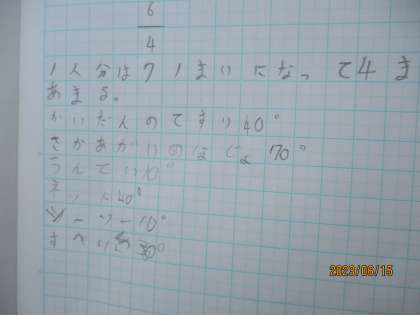 6
4
1人分は71まいになって4ま
あまる。
かいだんのてすり40°
さかあがりのほじょ70°
うんてい10°
シーソー10°
すべりだ30°
2023/06/15